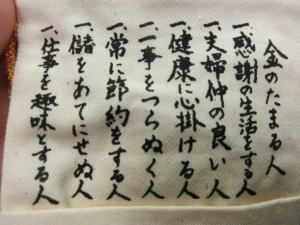 金のたまる人
一、感謝の生活をする人
一、夫婦仲の良い人
一、健康に心掛ける人
一、一事をつらぬく人
一、常に節約をする人
一、儲をあてにせぬ人
一、仕事を趣味とする人